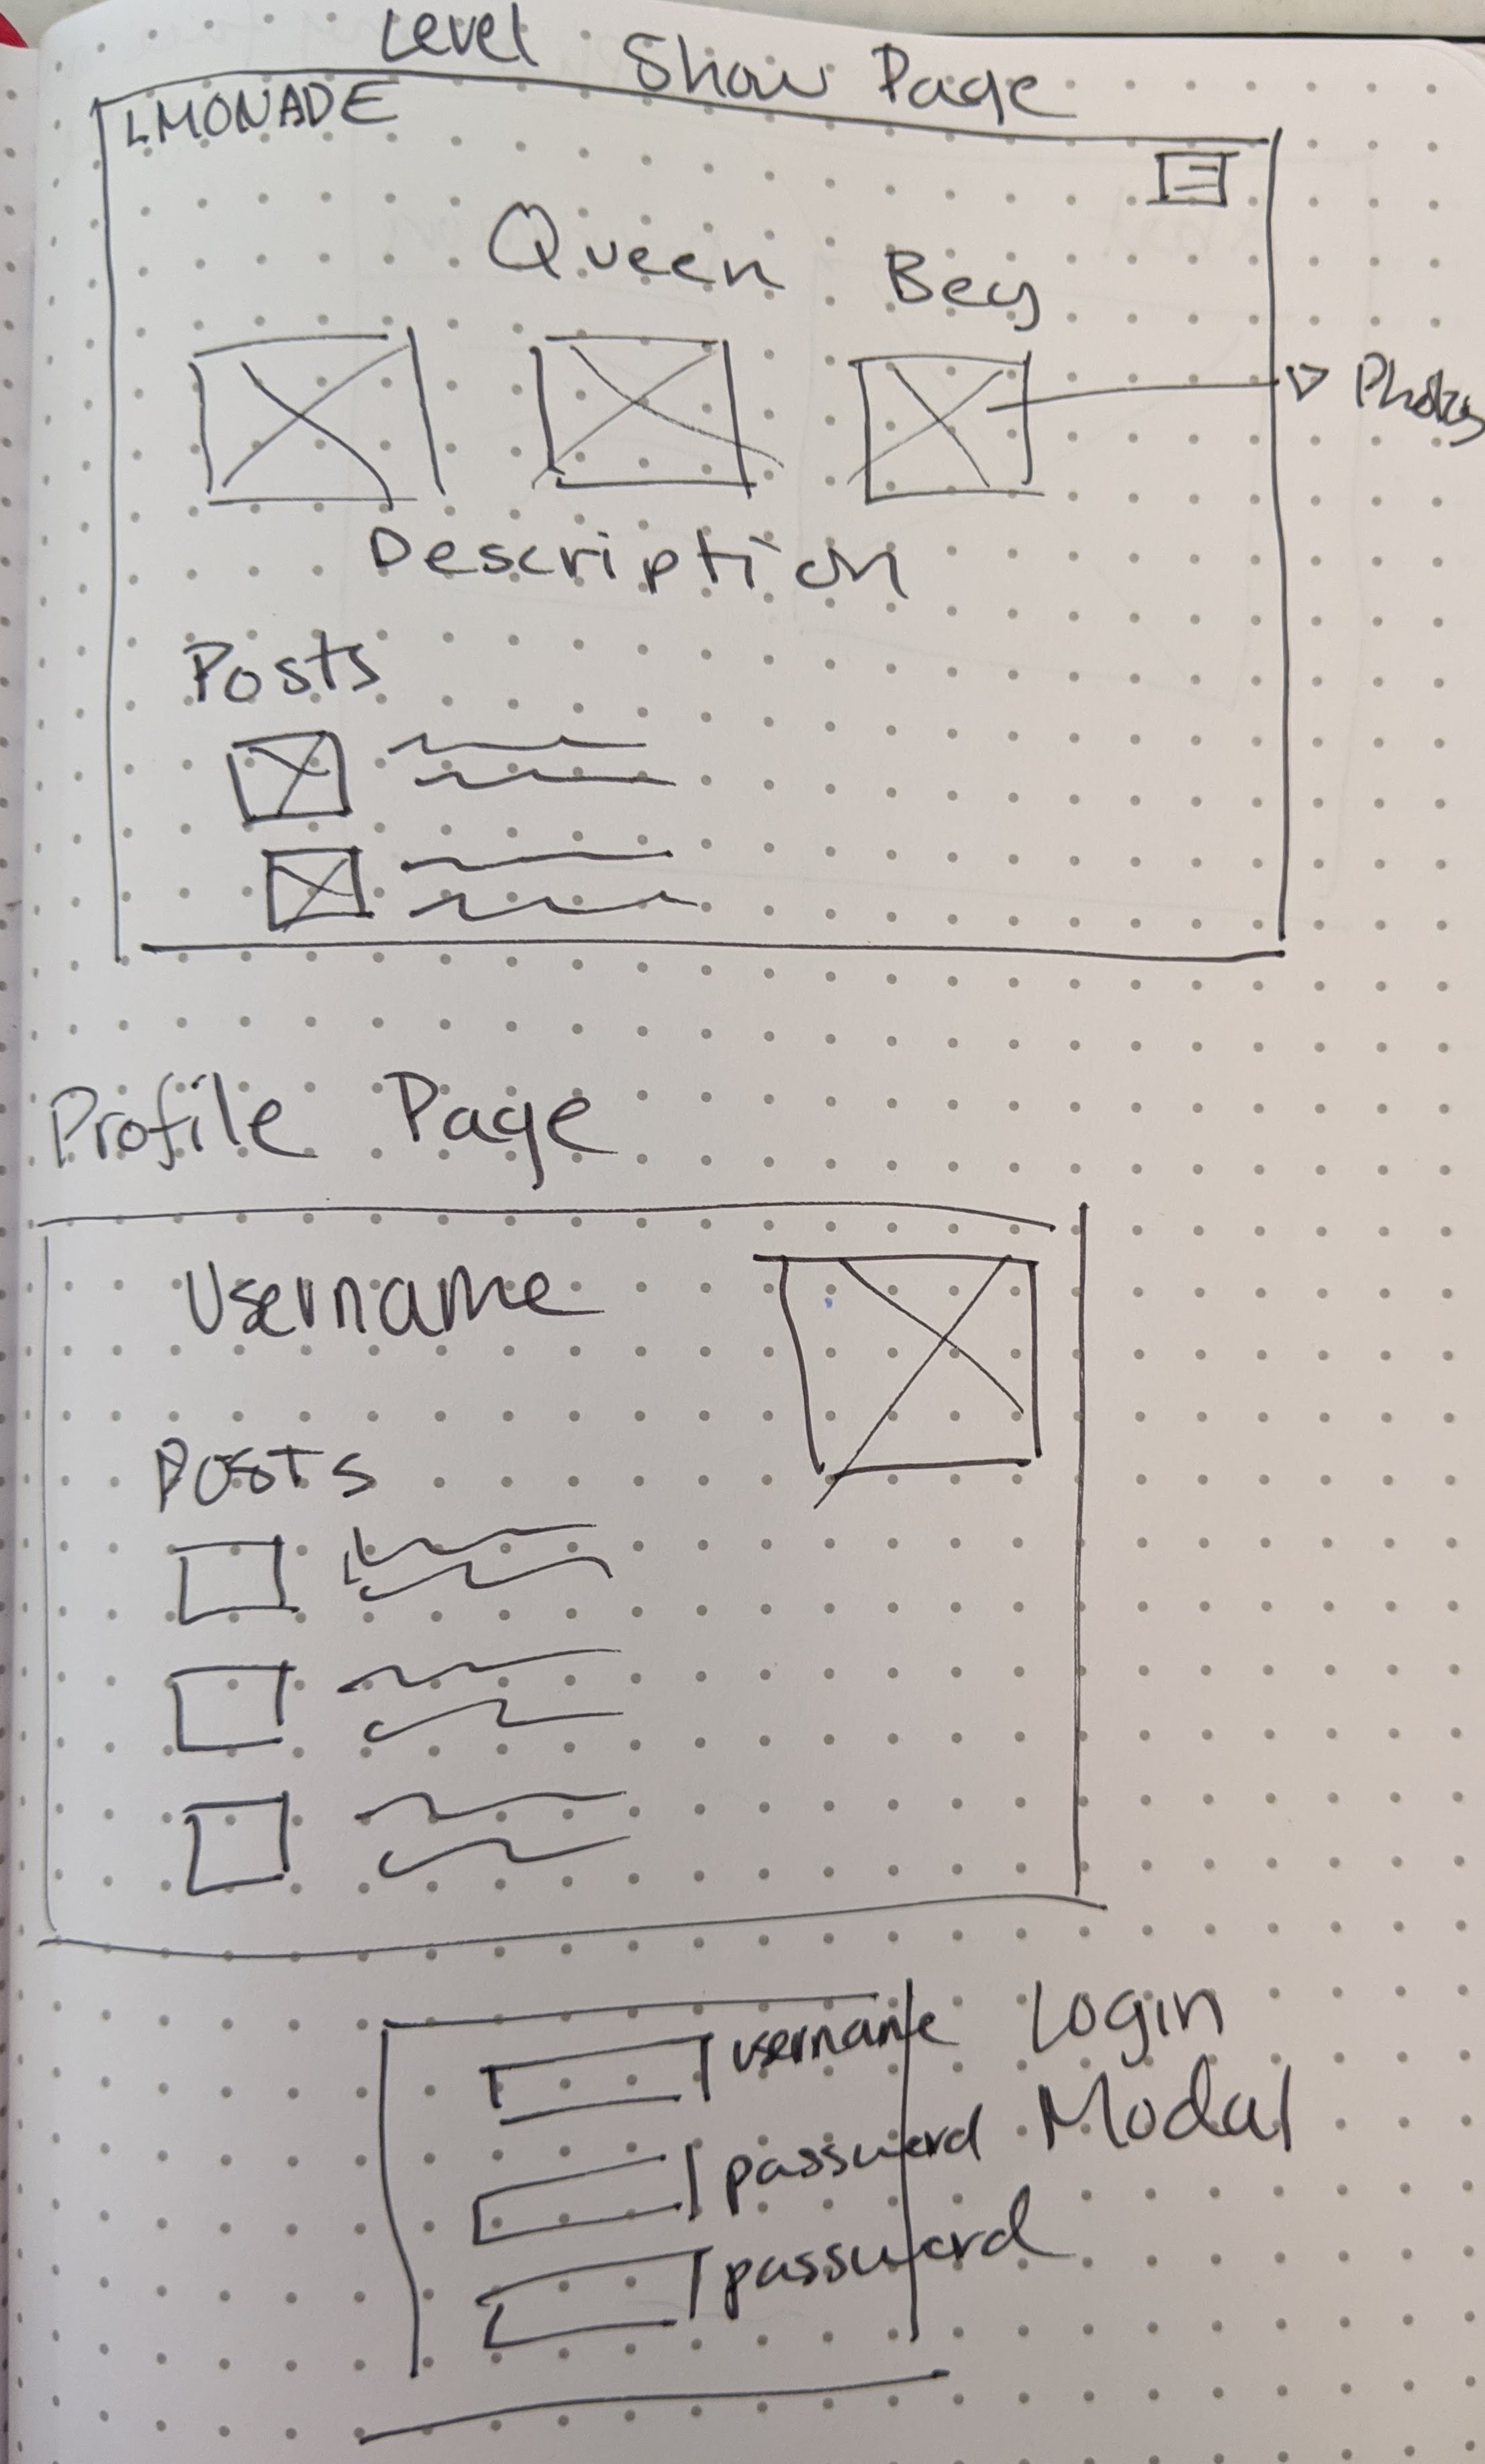 Level Show Page
LMONADE
Queen Bey
Photos
Description
Posts
Profile Page
Username
Posts
username
Login
password
Modal
password